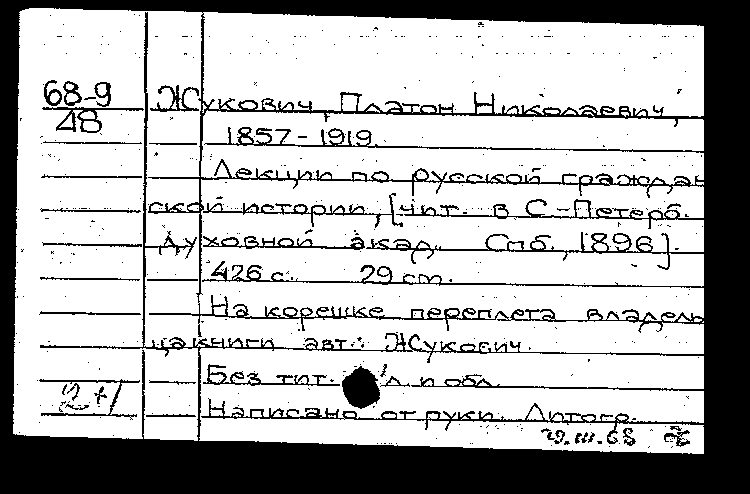 68-9
48
Жукович, Платон Николаевич,
1857-1919.
Лекции по русской граждан
ской истории, [чит. в С-Петерб.
духовной акад. Спб., 1896].
426 с. 29 ст.
На корешке переплета владель
ца книги авт.: Жукович.
Без тит. л. и обл.
Написано от руки. Литогр.
2+1
29.III.68